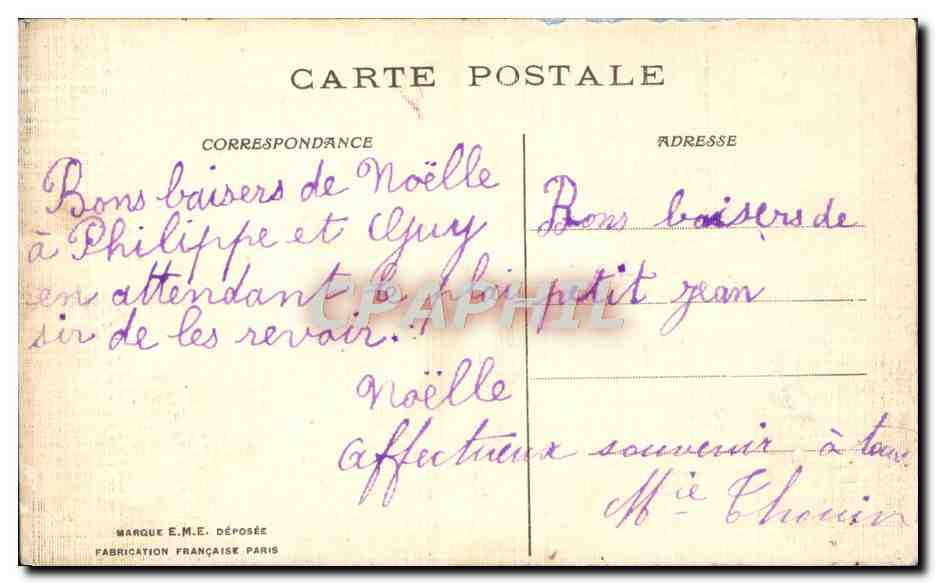 CARTE POSTALE
CORRESPONDANCE
Bons baisers de Noëlle
à Philippe et Guy
en attendant le plai
sir de les revoir.!
Noëlle
ADRESSE
Bons baisers de
petit jean
affectueux souvenir à tous
Mie Thouin
MARQUE E.M.E. DÉPOSÉE
FABRICATION FRANÇAISE PARIS
CPAPHIL